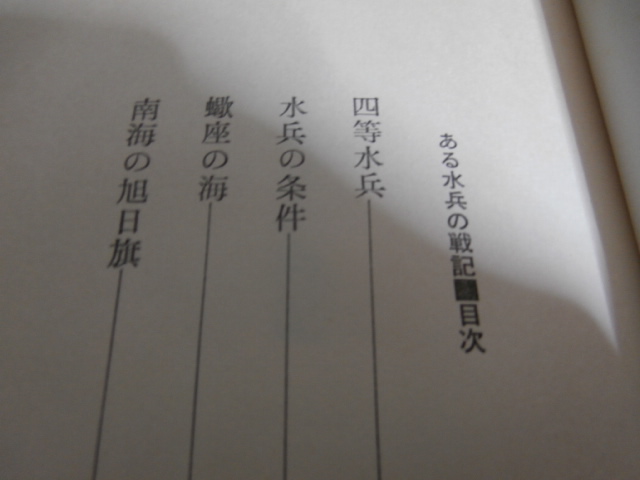 ある水兵の戦記■目次
四等水兵
水兵の条件
蠍座の海
南海の旭日旗